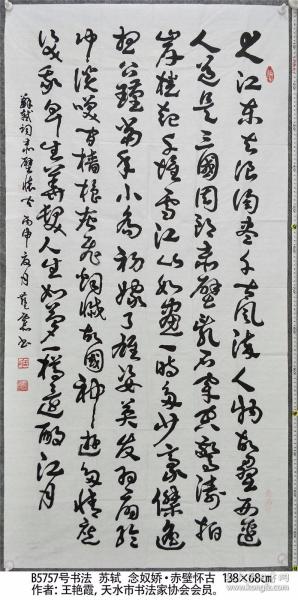 大江东去浪淘尽千古风流人物故垒西边
人道是三國周郎赤壁乱石穿空驚涛拍
岸捲起千堆雪江山如画一時多少豪傑遥
想公瑾當年小喬初嫁了雄姿英发羽扇綸
巾談笑间樯橹灰飞烟滅故國神遊多情應
笑我早生華髪人生如夢一樽還酹江月
蘇軾詞赤壁懷古 丙申 月 艳霞书
B5757号书法 苏轼 念奴娇·赤壁怀古 138×68cm
作者：王艳霞，天水市书法家协会会员。